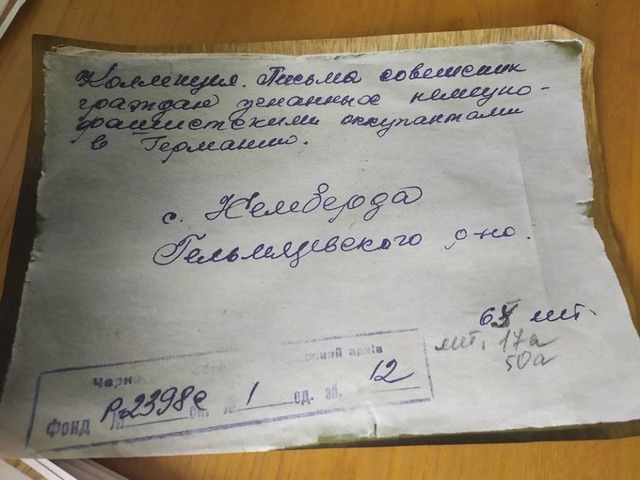 Коллекция. Письма советских
граждан угнанных немецко-
фашистскими оккупантами
в Германию.
с. Жемберда
Гельмязевского р-на.
шт.
шт. 17а
50а
Фонд № Р-2398с оп. № 1 од. зб. 12